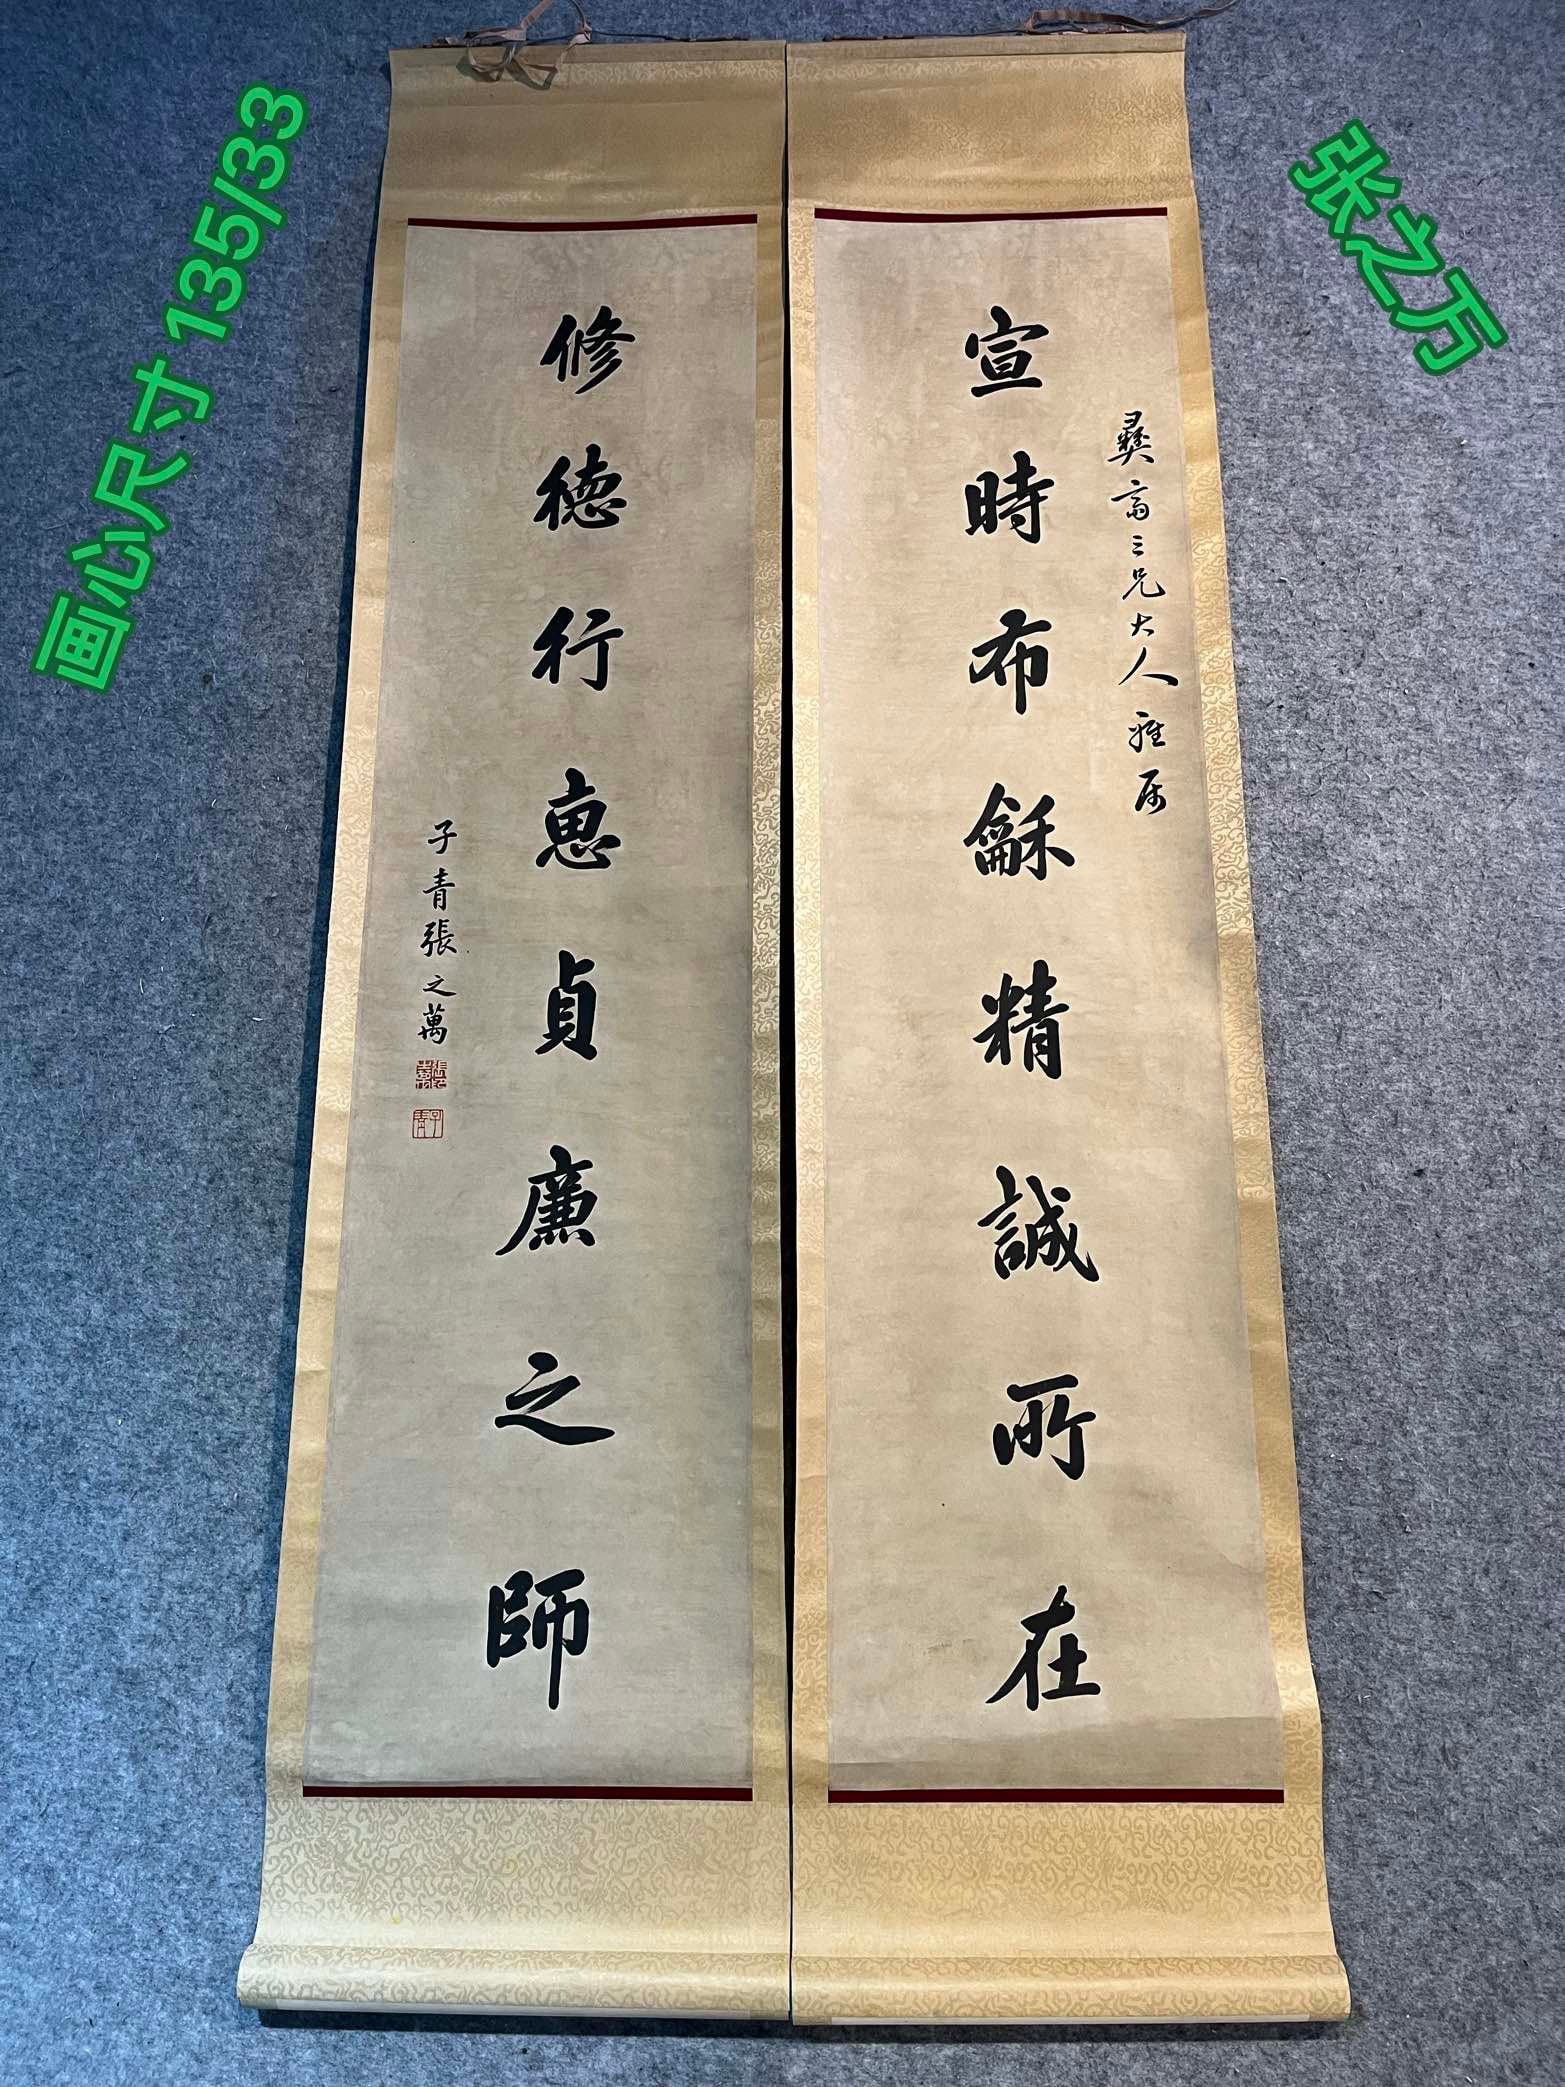 张之万
彝斋三兄大人雅属
宣時布龢精誠所在
修德行惠貞廉之師
子青張之萬
画心尺寸 135/33